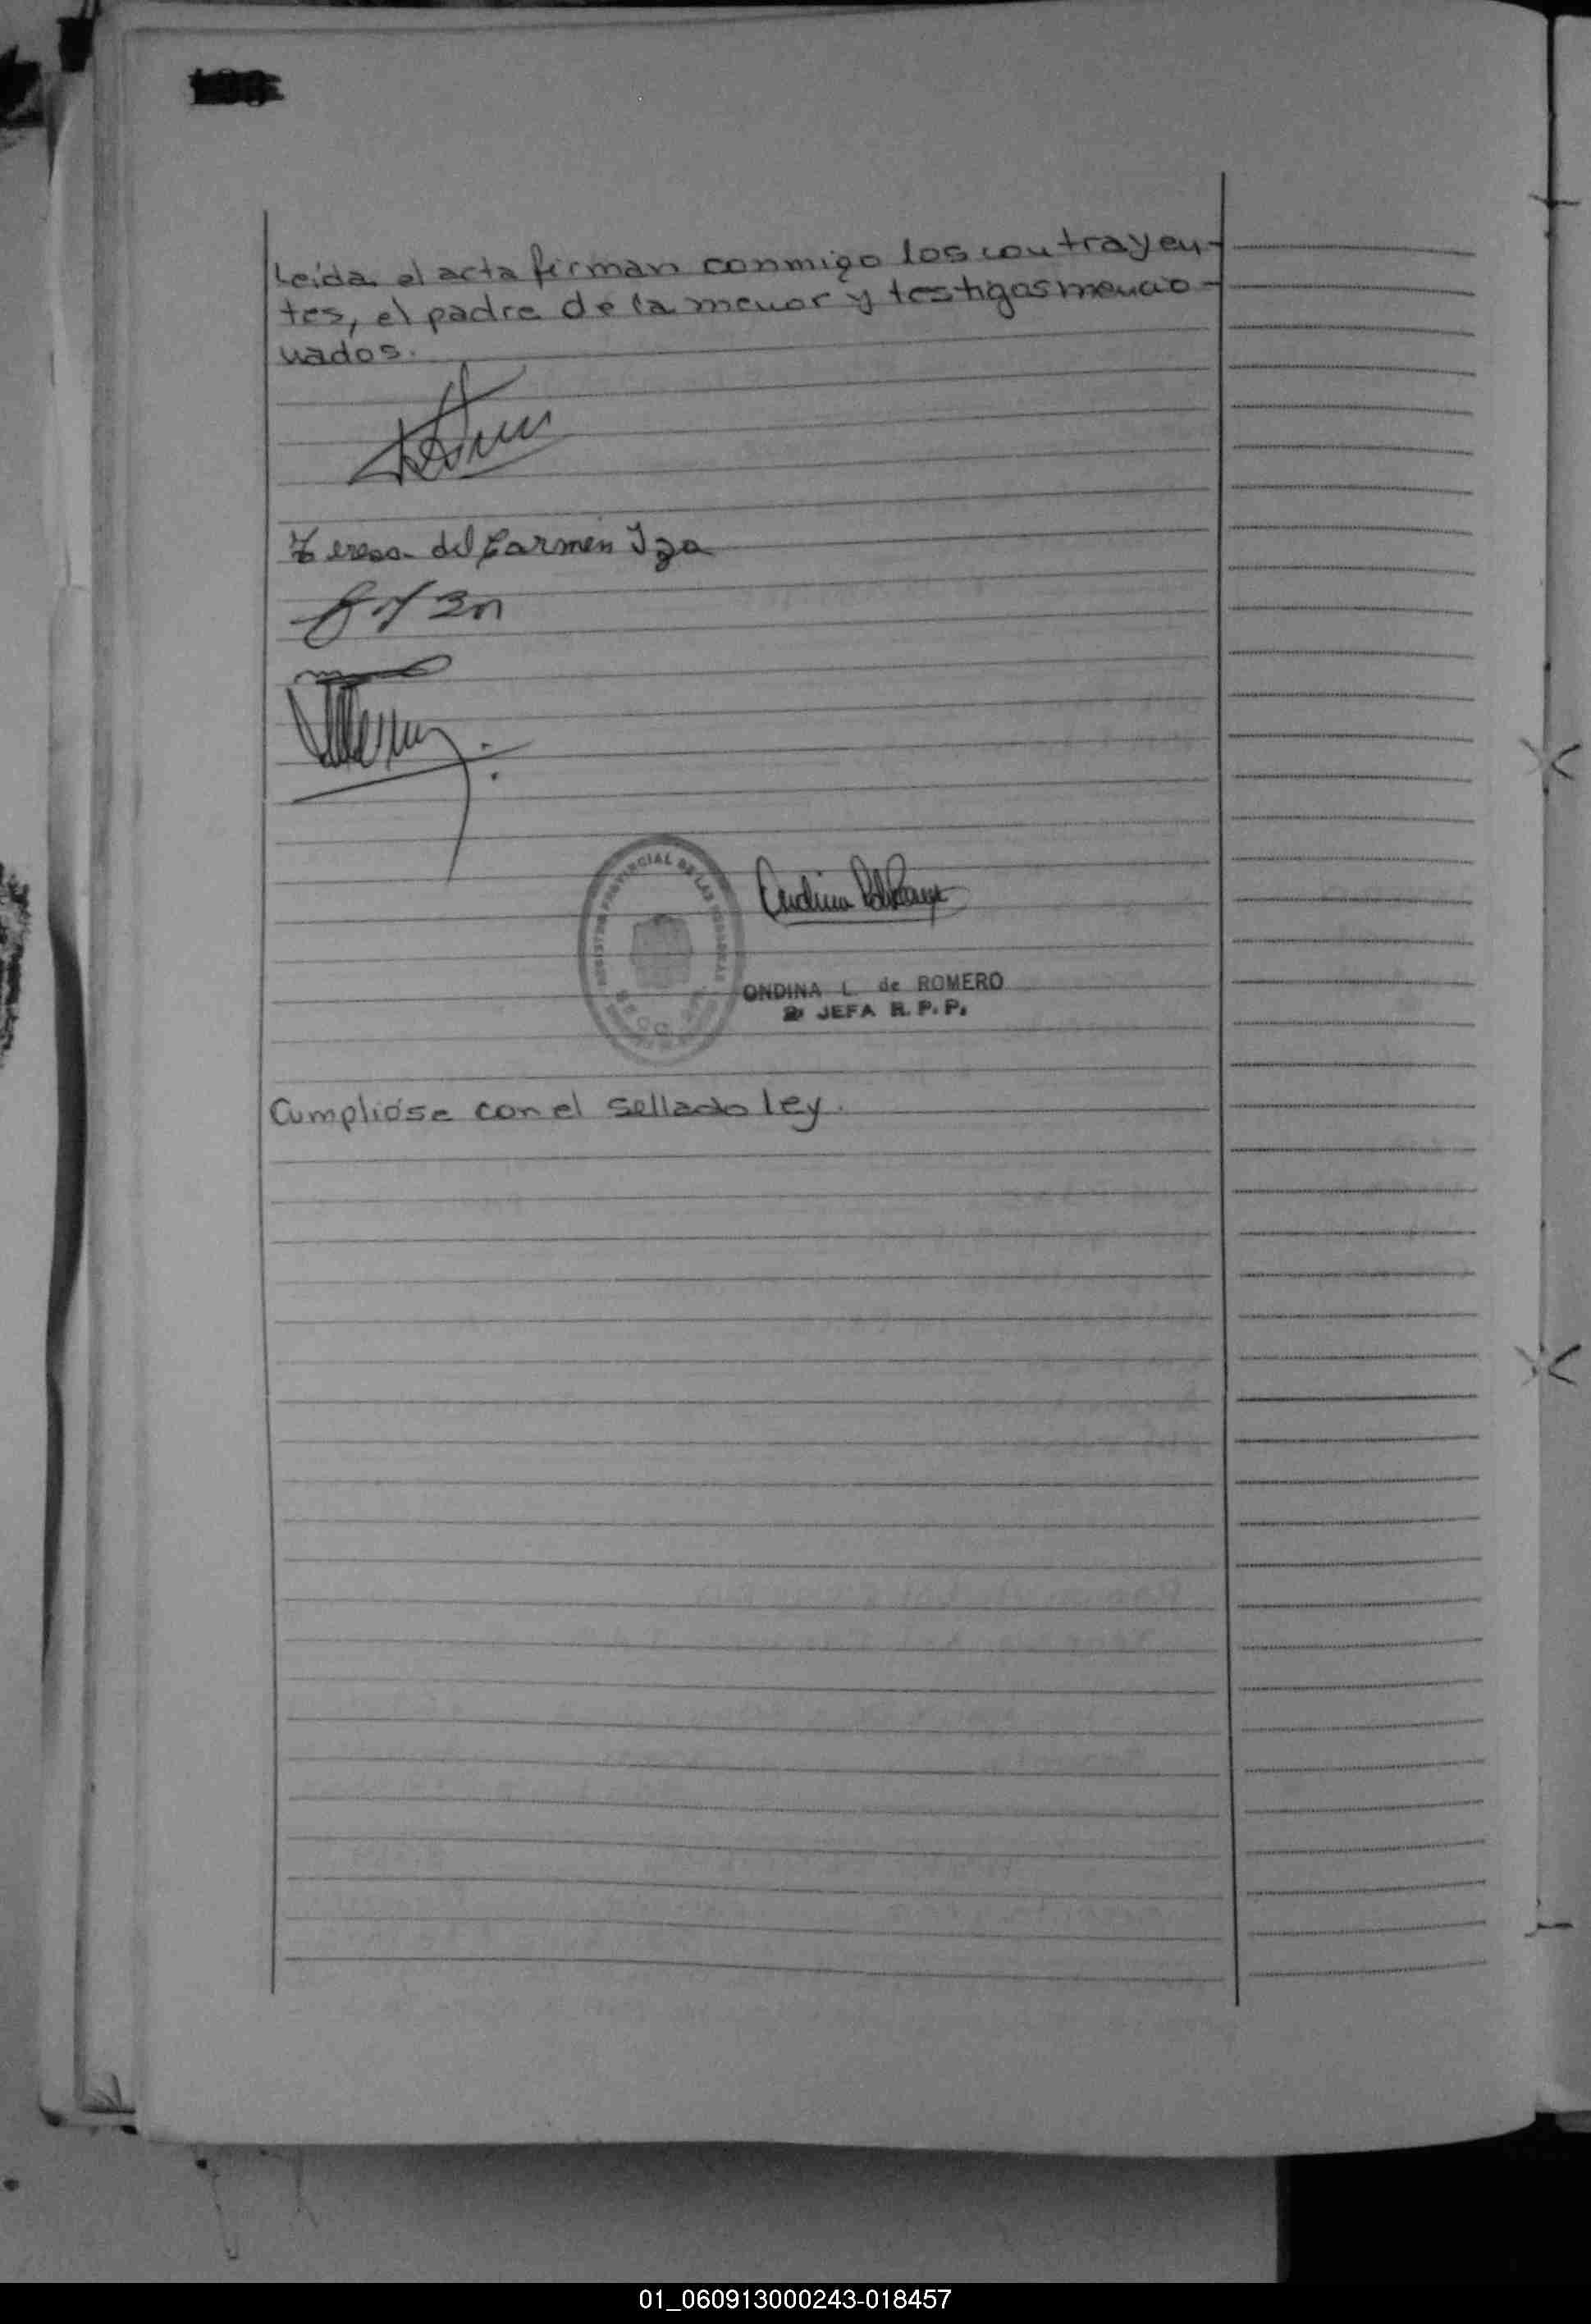 Leída el acta firman conmigo los contrayen-
tes, el padre de la menor y testigos mencio-
nados.
Teresa del Carmen Iza
REGISTRO PROVINCIAL DE LAS PERSONAS
ONDINA L. de ROMERO
JEFA R. P. P.
Cumplióse con el sellado ley.
01_060913000243-018457